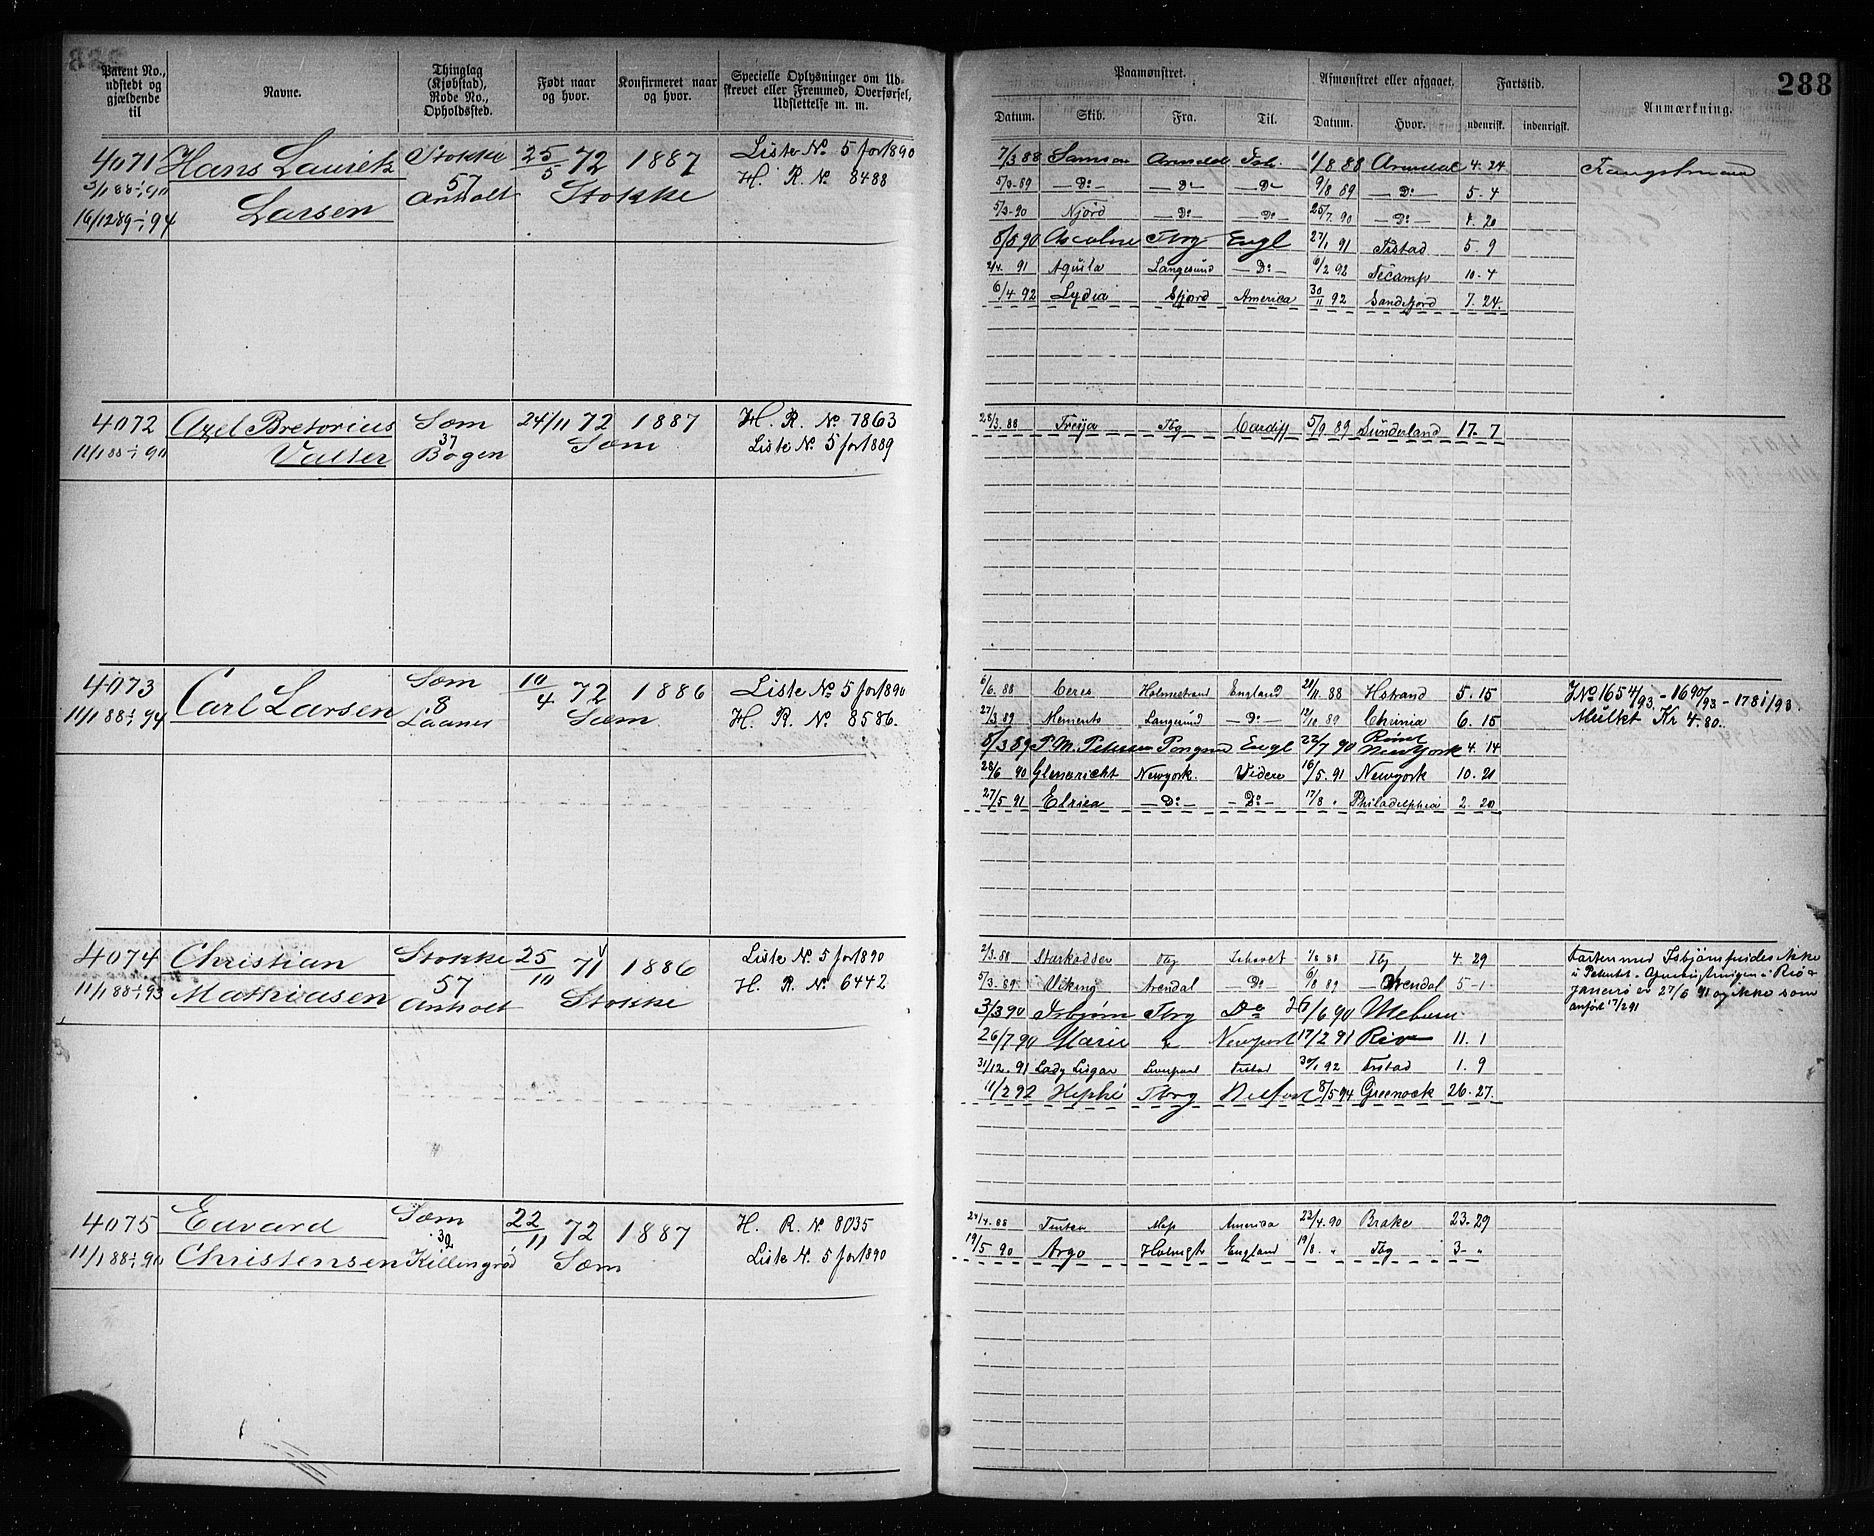 288
Patent No., udstedt og gjældende til
Navne.
Thinglag (Kjøbstad), Rode No., Opholdssted.
Født naar og hvor.
Konfirmeret naar og hvor.
Specielle Oplysninger om Udskrevet eller Fremmed, Overførsel, Udslettelse m. m.
Paamønstret.
Afmønstret eller afgaaet.
Fartstid.
Anmærkning.
Datum. Skib. Fra. Til. Datum. Hvor. udenrigsk. indenrigsk.
4071 Hans Lauritz Stokke 25/5 72 1887 Liste No 5 for 1890
3/1 88-1/1 90 57 H. R. No 8488
16/12 89-1/1 94 Larsen Anholt Stokke
7/3 88 Samson Arendal 1/8 88 Arendal 4. 24 Fangstmand
5/3-89 —Do— —Do— —Do— 9/8 89 —Do— 5. 4
5/3-90 Njord —Do— —Do— 25/7. 90 —Do— 4. 20
8/8 90 Tbrg Engl 27/1 91 Frstad 5. 9
2/4. 91 Aquila Langesund —Do— 6/2 92 Fécamp 10. 4
6/4 92 Lydia Sfjord America 30/11 92 Sandefjord 7. 24.
4072 Axel Bretorius Sæm 24/11 72 1887 H. R. No 7863
11/1 88-1/1 90 Valter 37 Bogen Sæm Liste No. 5 for 1889
28/3. 88 Freija Tbg Cardiff 5/9 89 Sunderland 17. 7
4073 Carl Larsen Sæm 10/4 72 1886 Liste No 5 for 1890
11/1 88-1/1 94 8 Laanes Sæm H. R. No 8586.
6/6. 88 Ceres Holmestrand England 28/11. 88 Hstrand 5. 15 J No 1654/93. - 1690/93 - 1781/93.
27/3 89 Memento Langesund —Do— 12/10 89 Chrania 6. 15 Mulkt Kr 4. 80.
8/3 89 P. M. Petersen Porsgrund Engl 22/7 90 New York 4. 14
28/6 90 Glenaricht Newyork. Videre 16/5. 91 Newyork 10. 21
27/5 91 Elrica —Do— —Do— 17/8 " Philadelphia 2. 20
4074 Christian Stokke 25/10 71 1886 Liste No. 5 for 1890
11/1 88-1/1 93 Mathiasen 57 Anholt Stokke H. R. No 6442
2/3. 88 Starkodder Tbg Ishavet 1/8 88 Tbg 4. 29 Farten med Isbjørn findes ikke
5/3. 89 Viking Arendal —Do— 6/8 89 Arendal 5-1 i Patentet. Afmønstringen i Rio
3/3 90 Isbjørn Tbrg Do 26/6 90 janeiro er 27/6 91 og ikke som
anført 17/2 91
26/7 90 Marie " Newport 17/2 91 Rio 11. 1
31/12. 91 Lady Lisgar Liverpool Frstad 30/1 92 Frstad 1. 9
11/2 92 Hephe Tbrg 8/5 94 Greenock 26. 27.
4075 Edvard Sæm 22/11 72 1887 H. R. No. 8035
11/1 88-1/1 90 Christensen 39 Killingrød Sæm Liste No. 5 for 1890
24/4. 88 Moss America 23/4. 90 Brake 23. 29
19/5 90 Argo England 19/8. " Tbg 3- "